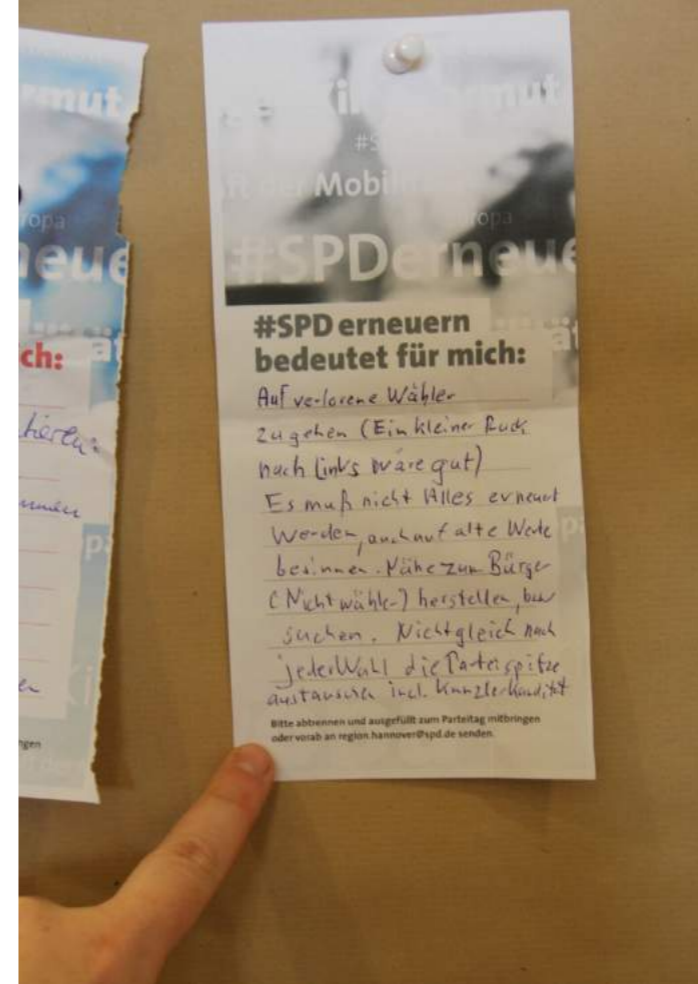 rmut
ropa
neue
ch:
ät
mmen
p
en
ngen
rmut
#S
ft der Mobili
ropa
#SPDerneue
tät
#SPD erneuern
bedeutet für mich:
Auf verlorene Wähler
zugehen (Ein kleiner Ruck
nach links wäre gut)
Es muß nicht Alles erneuert
werden, auch auf alte Werte
besinnen. Nähe zum Bürger
(Nichtwähler) herstellen, bzw
suchen. Nicht gleich nach
jeder Wahl die Parteispitze
austauschen incl. Kanzlerkandidat
Bitte abtrennen und ausgefüllt zum Parteitag mitbringen
oder vorab an region.hannover@spd.de senden.